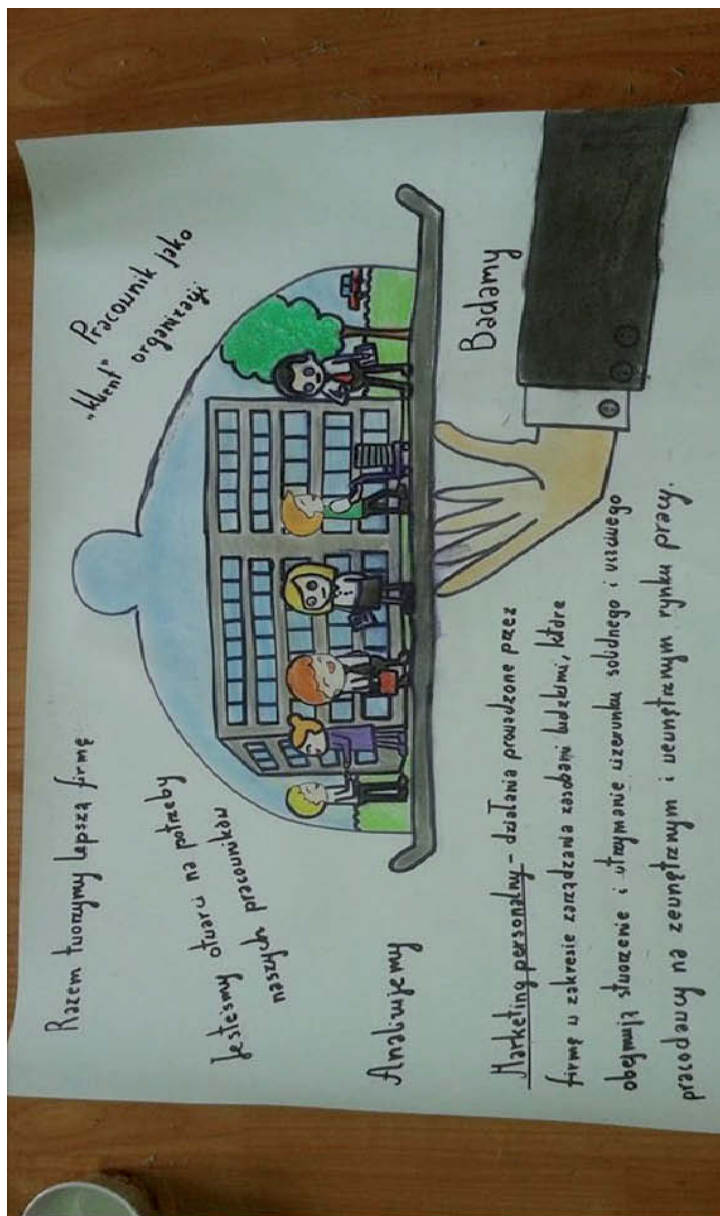 Razem tworzymy lepszą firmę
Jesteśmy otwarci na potrzeby
naszych pracowników
Pracownik jako
"klient" organizacji
Analizujemy
Badamy
Marketing personalny - działania prowadzone przez
firmę w zakresie zarządzania zasobami ludzkimi, które
obejmują stworzenie i utrzymanie wizerunku solidnego i uczciwego
pracodawcy na zewnętrznym i wewnętrznym rynku pracy.